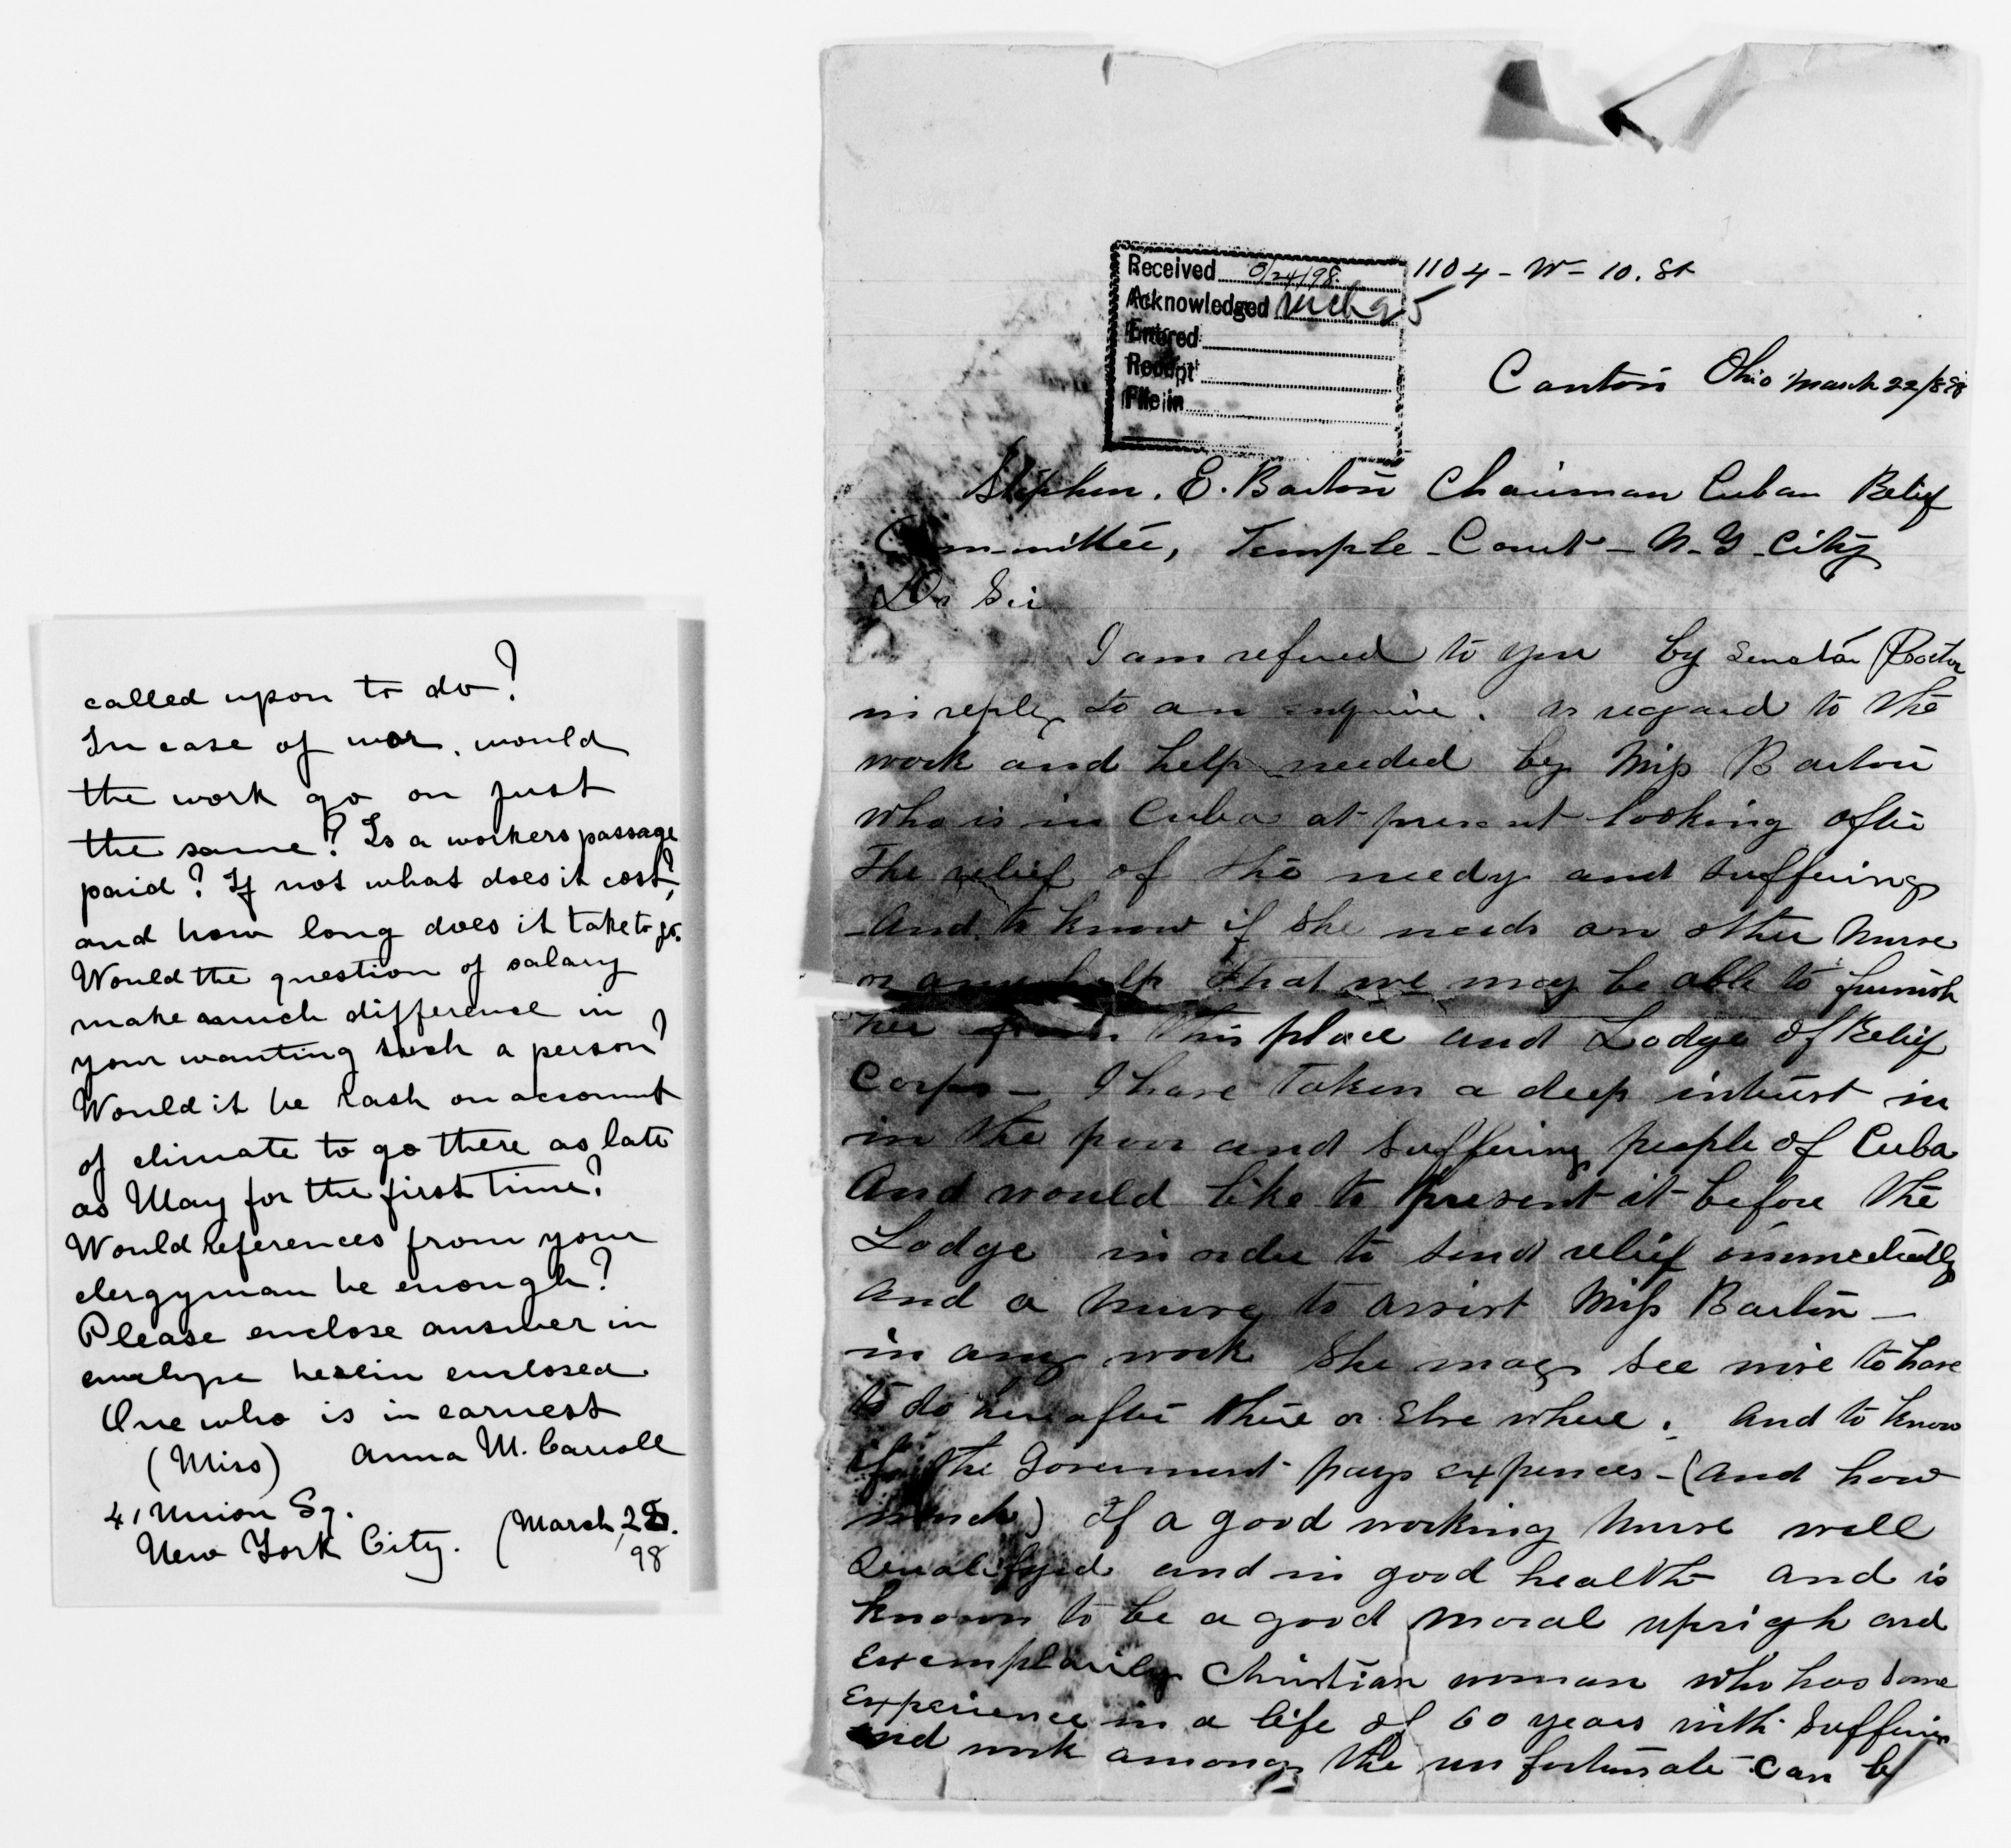 called upon to do?
In case of war, would
the work go on just
the same? Is a workers passage
paid? If not what does it cost,?
and how long does it take to go.
Would the question of salary
make much difference in
your wanting such a person?
Would it be rash on account
of climate to go there as late
as May for the first time?
Would references from your
clergyman be enough?
Please enclose answer in
envelope herein enclosed
One who is in earnest
(Miss) Anna M. Carroll
41 Union Sq.
New York City. (March 
98
Received 3/24/98.
Acknowledged Mch 25
Entered
Receipt
File in
1104 - W - 10. St
Canton Ohio March 22/898
Stephen. E. Barton Chairman Cuban Relief
Committee, Temple - Court - N. Y - City
Dr Sir
I am refered to you by Senator Proctor
in reply to an enquire. in regard to the
work and help needed by Miss Barton
who is in Cuba at present looking after
The relief of the needy and suffering
And to know if she needs an other nurse
or any help that we may be able to furnish
her from this place and Lodge of Relief
Corps - I have Taken a deep intrust in
in the poor and suffering people of Cuba
And would like to present it before the
Lodge in order to send relief immediatly
And a nurse to assist Miss Barton -
in any work she may see wise to have
to do here after there or Else where. And to know
if the Goverment pays expences - (And how
much) If a good working nurse well
Qualifyed and in good health and is
known to be a good moral uprigh and
Exemplarily Christian woman who has some
Experience in a life of 60 years with suffering
and work among the unfortunate can be